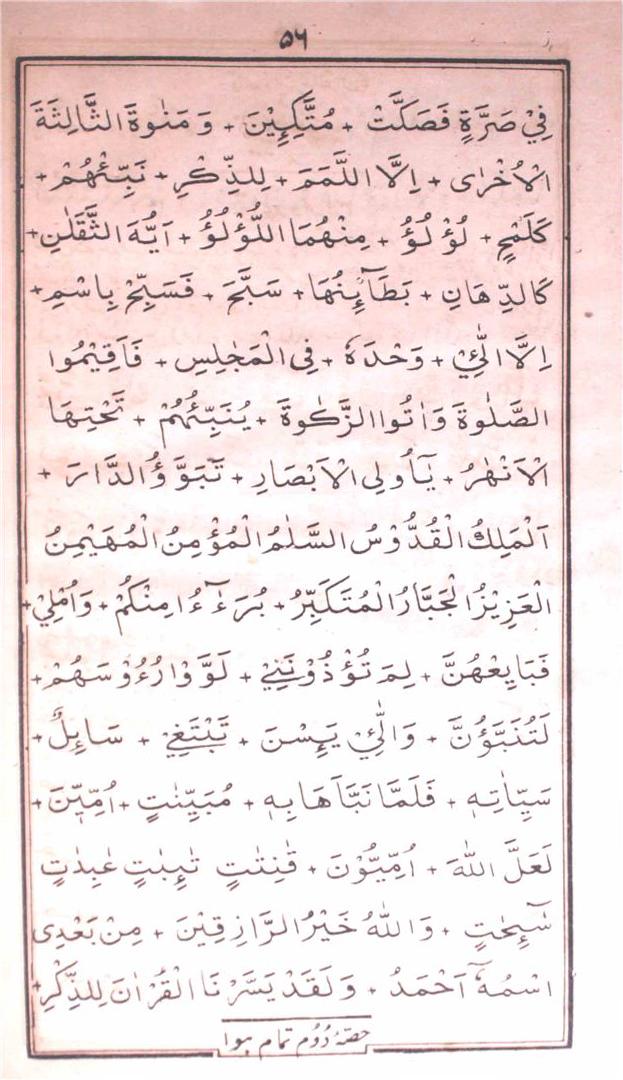 ۵۶
فِيْ صَرَّةٍ فَصَكَّتْ + مُتَّكِـِٕيْنَ + وَ مَنٰوةَ الثَّالِثَةَ
الْاُخْرٰى + اِلَّا اللَّمَمَ + لِلذِّكْرِ + نَبِّئْهُمْ +
كَلَمْحٍ + لُؤْ لُؤٌ + مِنْهُمَا اللُّؤْلُؤُ + اَيُّهَ الثَّقَلٰنِ +
كَالدِّهَانِ + بَطَآئِنُهَا + سَبَّحَ + فَسَبِّحْ بِاسْمِ +
اِلَّا الّٰٓـِٔيْ + وَحْدَهٗ + فِى الْمَجٰلِسِ + فَاَقِيْمُوا
الصَّلٰوةَ وَاٰتُوا الزَّكٰوةَ + يُنَبِّئُهُمْ + تَحْتِهَا
الْاَنْهٰرُ + يٰٓاُولِى الْاَبْصَارِ + تَبَوَّؤُ الدَّارَ +
اَلْمَلِكُ الْقُدُّوْسُ السَّلٰمُ الْمُؤْمِنُ الْمُهَيْمِنُ
الْعَزِيْزُ الْجَبَّارُ الْمُتَكَبِّرُ + بُرَءٰٓءُا مِنْكُمْ + وَاُمْلِيْ +
فَبَايِعْهُنَّ + لِمَ تُؤْذُوْنَنِيْ + لَوَّوْا رُءُوْسَهُمْ +
لَتُنَبَّؤُنَّ + وَالّٰٓـِٔيْ يَىِٕسْنَ + تَبْتَغِيْ + سَاىِٕلٌ +
سَيِّاٰتِهٖ + فَلَمَّا نَبَّاَهَا بِهٖ + مُبَيِّنٰتٍ + اُمِّيّٖنَ +
لَعَلَّ اللّٰهَ + اُمِّيُّوْنَ + قٰنِتٰتٍ تٰٓىِٕبٰتٍ عٰبِدٰتٍ
سٰٓىِٕحٰتٍ + وَاللّٰهُ خَيْرُ الرَّازِقِيْنَ + مِنْ بَعْدِى
اسْمُهٗٓ اَحْمَدُ + وَلَقَدْ يَسَّرْنَا الْقُرْاٰنَ لِلذِّكْرِ +
حصّۂ دُوُم تمام ہوا